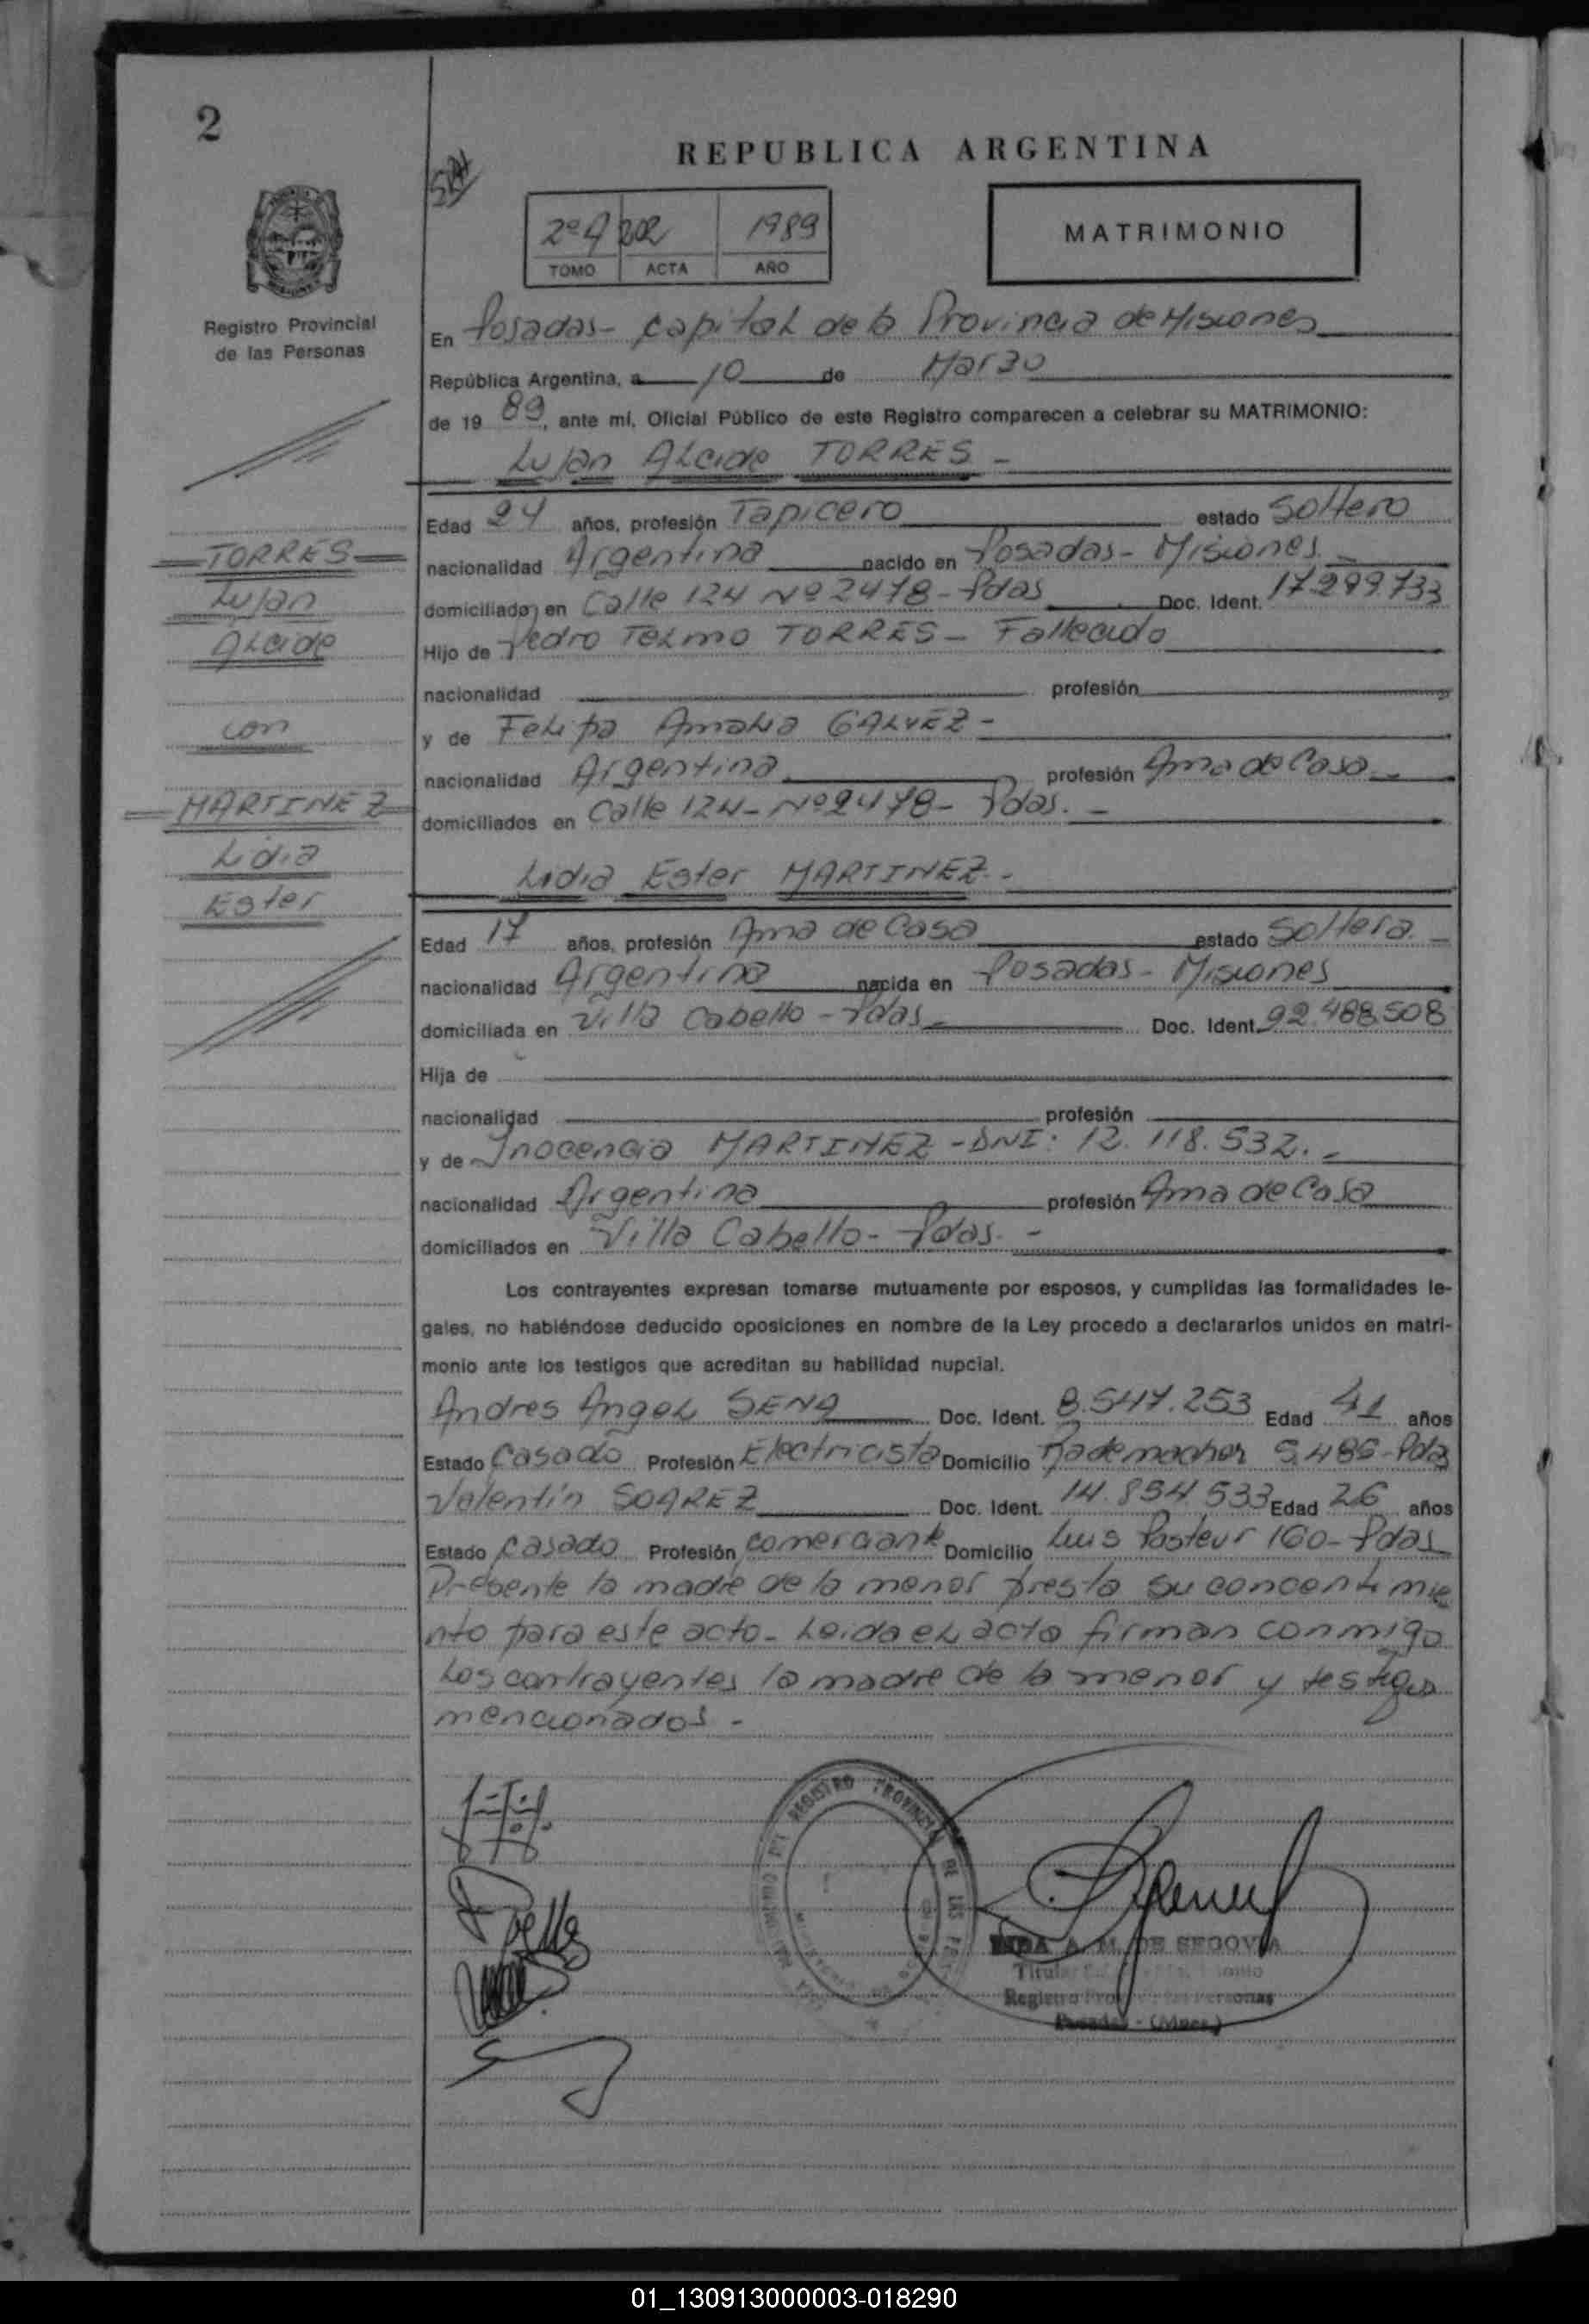 2
REPUBLICA ARGENTINA
2º A 202 1989
TOMO ACTA AÑO
MATRIMONIO
Registro Provincial
de las Personas
En Posadas- Capital de la Provincia de Misiones
República Argentina, a 10 de Marzo
de 19 89, ante mí, Oficial Público de este Registro comparecen a celebrar su MATRIMONIO:
Lujan Alcide TORRES -
Edad 24 años, profesión Tapicero estado Soltero
nacionalidad Argentina nacido en Posadas- Misiones
domiciliado en Calle 124 Nº 2478 - Pdas Doc. Ident. 17.299.733
Hijo de Pedro Telmo TORRES - Fallecido
nacionalidad profesión
y de Felipa Amalia GALVEZ -
nacionalidad Argentina profesión Ama de Casa
domiciliados en Calle 124 - Nº 2478 - Pdas. -
TORRES
Lujan
Alcide
con
MARTINEZ
Lidia
Ester
Lidia Ester MARTINEZ -
Edad 17 años, profesión Ama de Casa estado Soltera -
nacionalidad Argentina nacida en Posadas- Misiones
domiciliada en Villa Cabello - Pdas - Doc. Ident. 92.488.508
Hija de
nacionalidad profesión
y de Inocencia MARTINEZ - DNI: 12.118.532. -
nacionalidad Argentina profesión Ama de Casa
domiciliados en Villa Cabello - Pdas. -
Los contrayentes expresan tomarse mutuamente por esposos, y cumplidas las formalidades le-
gales, no habiéndose deducido oposiciones en nombre de la Ley procedo a declararlos unidos en matri-
monio ante los testigos que acreditan su habilidad nupcial.
Andres Angel SENA Doc. Ident. 8.547.253 Edad 41 años
Estado Casado Profesión Electricista Domicilio Rademacher 5.486 - Pdas
Valentín SOAREZ Doc. Ident. 14.854.533 Edad 26 años
Estado Casado Profesión comerciante Domicilio Luis Pasteur 160 - Pdas
Presente la madre de la menor presta su concentimie
nto para este acto - Leida el acta firman conmigo
Los contrayentes la madre de la menor y testigos
mencionados -
REGISTRO PROVINCIAL DE LAS
A. M. DE SEGOVIA
Titular
Registro Personas
Posadas - (Mnes.)
01_130913000003-018290